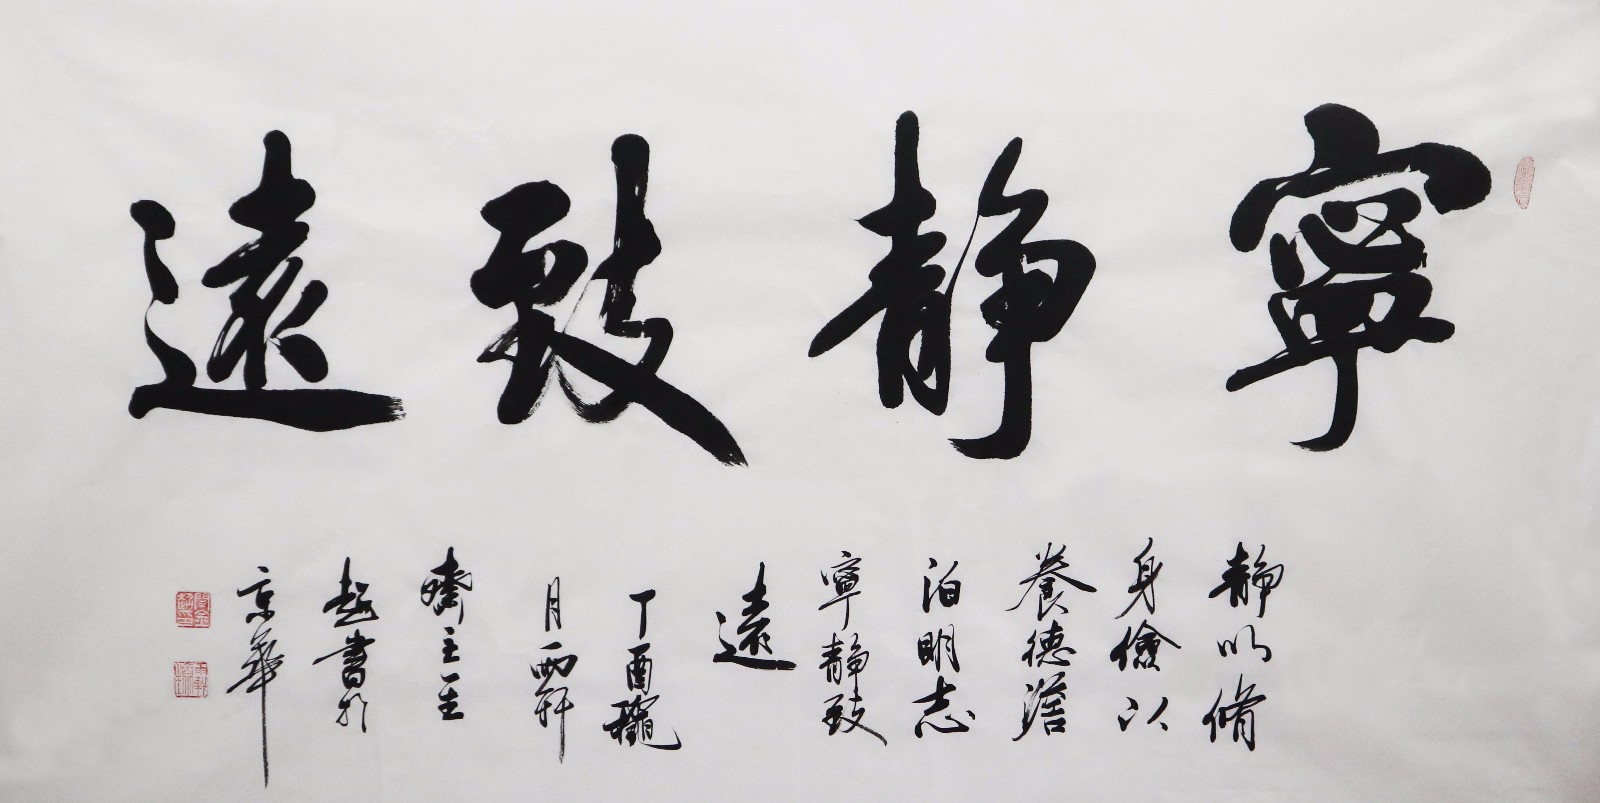 寧靜致遠
靜以脩
身儉以
養德澹
泊明志
寧靜致
遠
丁酉龝
月兩軒
齋主王
超書於
京華